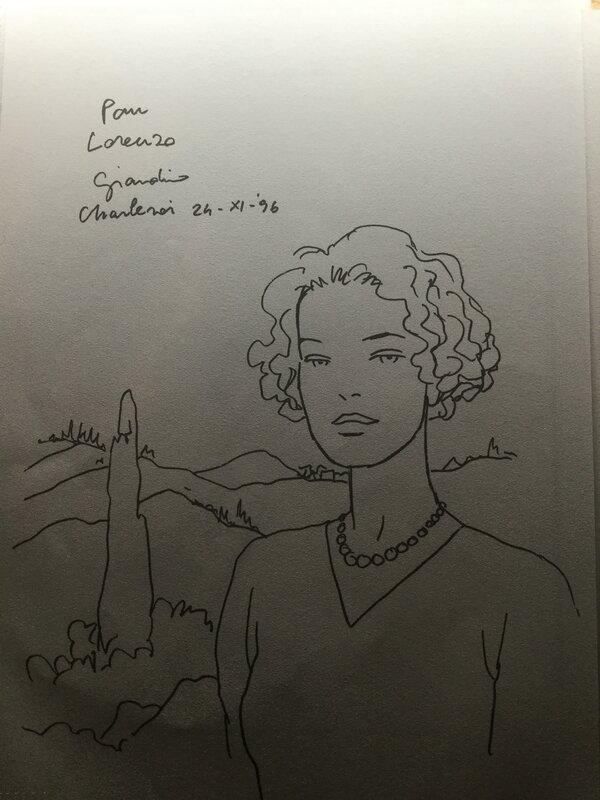 Pour
Lorenzo
Giandino
Charleroi 24-XI-'96